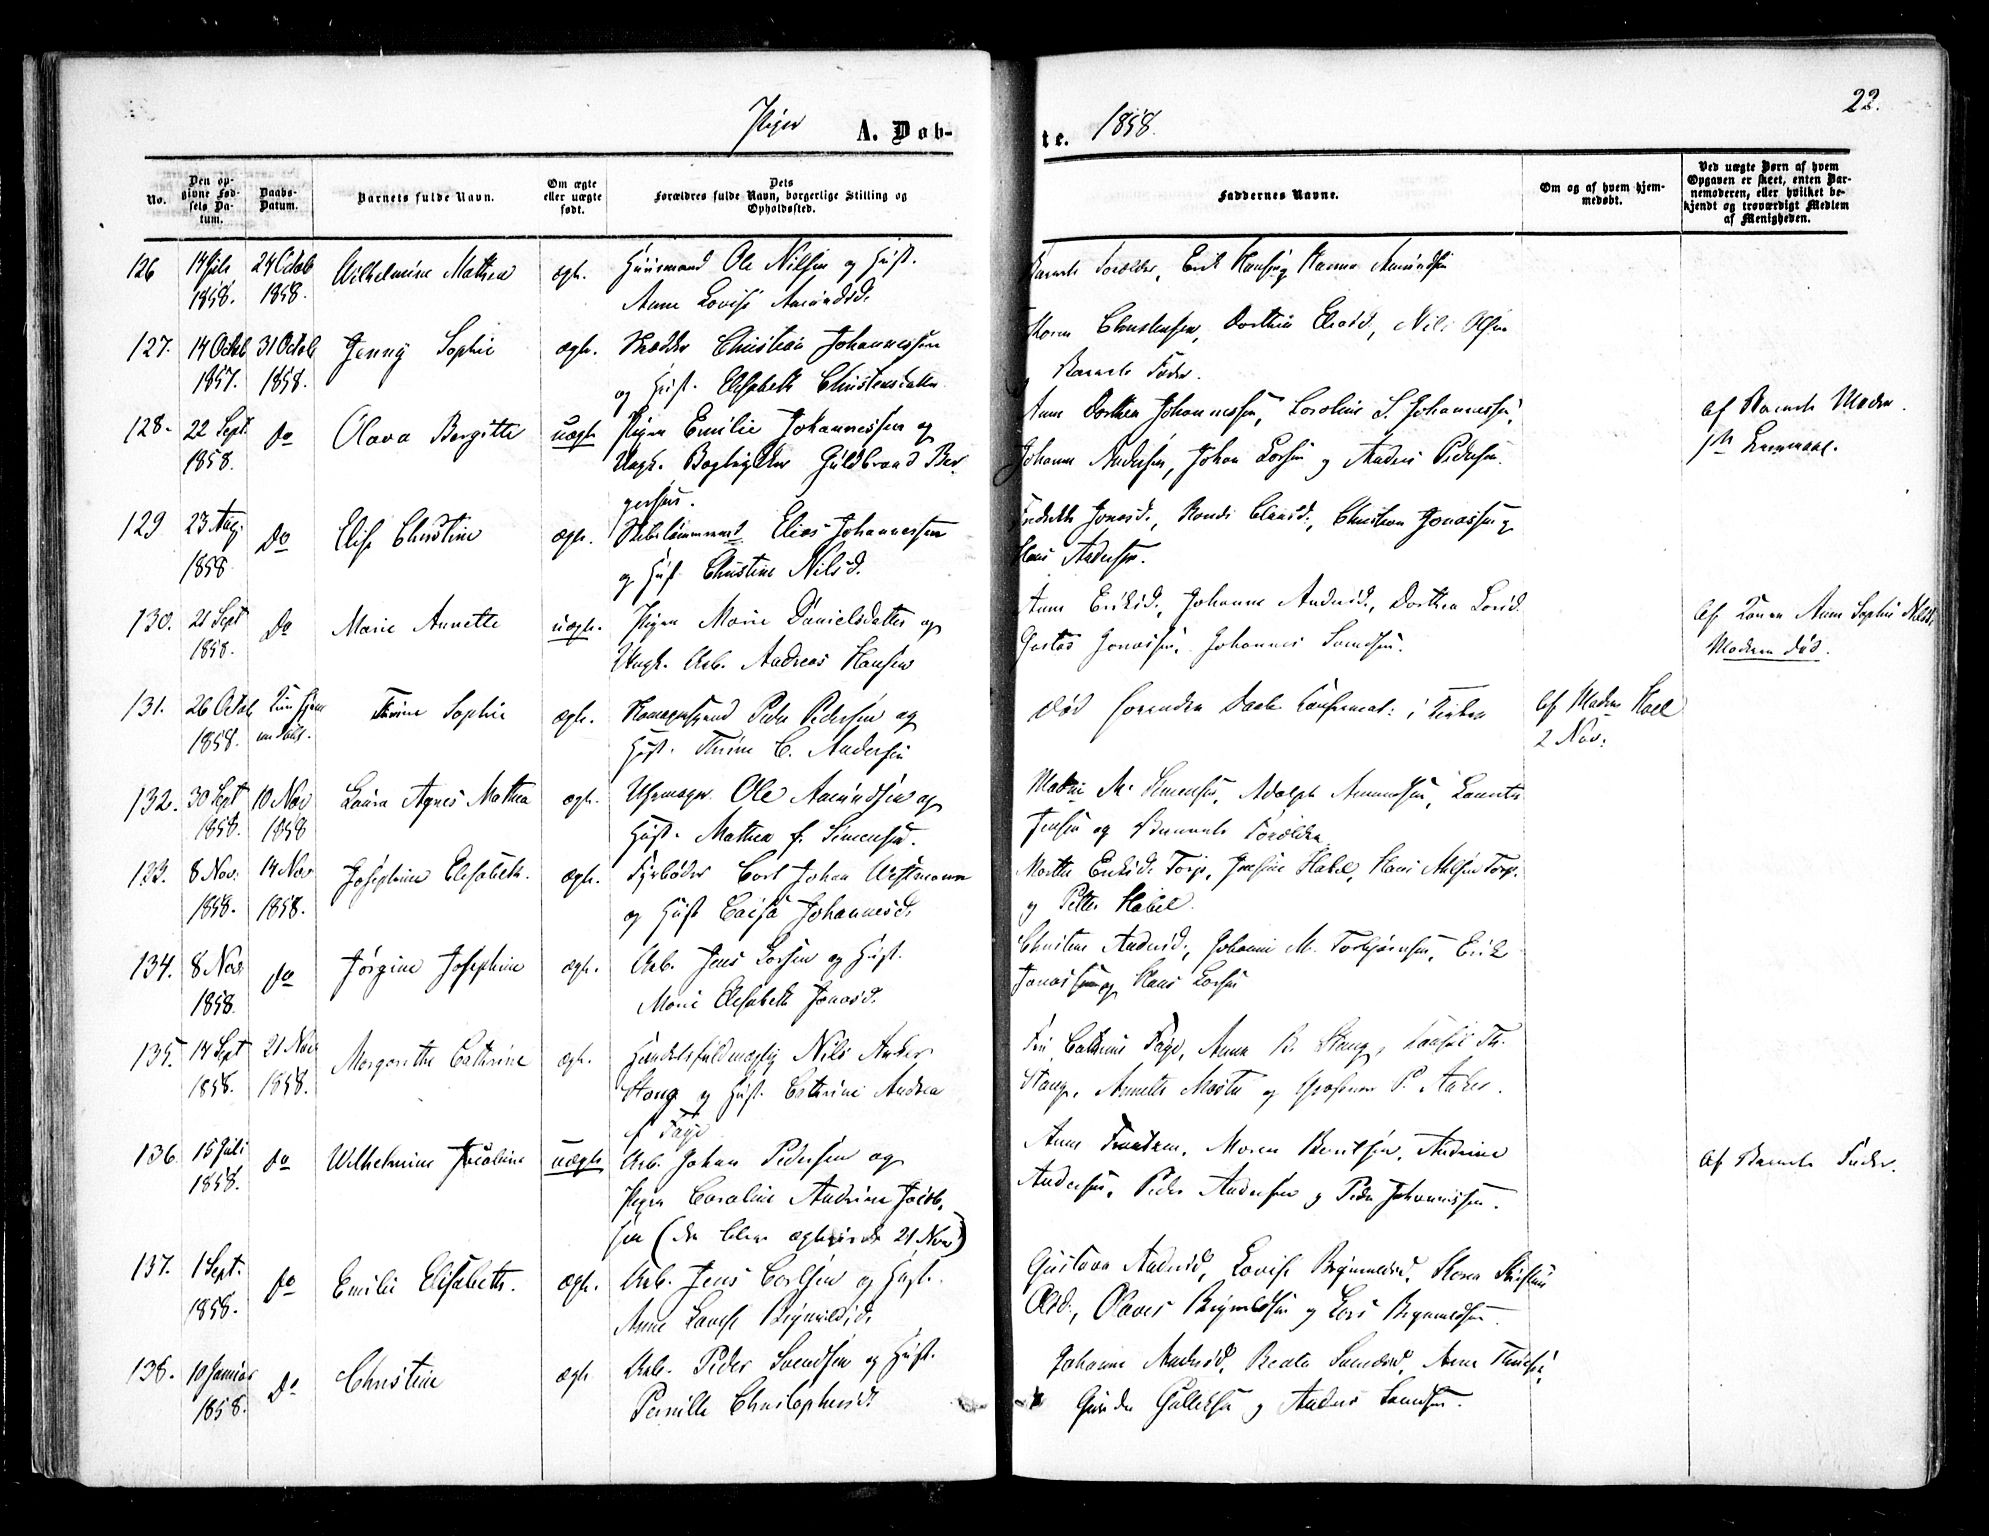 Piger A. Døb-
te. 1858.
22.
No.
Den op-
givne Fød-
sels Da-
tum.
Daabs-
Datum.
Barnets fulde Navn.
Om ægte
eller uægte
født.
Dets
Forældres fulde Navn, borgerlige Stilling og
Opholdssted.
Faddernes Navne.
Om og af hvem hjem-
medøbt.
Ved uægte Børn af hvem
Opgaven er skeet, enten Bar-
nemoderen, eller hvilket be-
kjendt og troværdigt Medlem
af Menigheden.
126 14 Juli 24 Octob Wilhelmine Mathea ægte. Huusmand Ole Nilsen og Hust.
1858. 1858. Anne Lovise Amundsd.
Barnets Forældre, Erik Hansen og Hanna Amundsen
127. 14 Octob 31 Octob Jenny Sophie ægte. Christian Johannessen
1857. 1858. og Hust. Elisabeth Christensdatter
Maren Christensen, Dorthea Elnsd., Nils Olsen
Barnets Fader.
128. 22 Sept. do Olava Bergitte uægte Pigen Emilie Johannessen og
1858. Ungk. Guldbrand Ber-
gersen.
Anne Dorthea Johannessen, Caroline S. Johannessen,
Johanne Andersen, Johan Larsen og Anders Pedersen.
Af Barnets Moder.
129 23 Aug. Do Elise Christine ægte. Skibstømmerm. Elias Johannessen
1858 og Hust. Christine Nilsd.
Jonasd., Randi Clausd., Christian Jonassen og
Hans Andersen.
130. 21 Sept Do Marie Annette uægte. Pigen Marie Danielsdatter og
1858. Ungk. Arb. Andreas Hansen
Anne Eriksd., Johanne Andersd., Dorthea Larsd.
Gustav Jonassen, Johannes Svendsen.
Af Konen Anne Sophie Nilsd.
Moderen død.
131. 26 Octob Kun hjem- Thrine Sophie ægte.
1858. medøbt. Peder Pedersen og
Hust. Thrine C. Andersen
død forinden Daabs Confirmat. i Kirken
Af Madm Hoel
2 Nov.
132. 30 Sept 10 Nov Laura Agnes Mathea ægte. Uhrmager Ole Amundsen og
1858. 1858 Hust. Mathea f. Simensen.
M. Simensen, Adolph Amundsen, Laurits
Jensen og Barnets Forældre
133. 8 Nov. 14 Nov Josephine Elisabeth. ægte. Fyrbøder Carl Johan Westmann
1858. 1858. og Hust Caisa Johannesd.
Marthe Eriksd. Torp, Josefine Habel, Hans Nilsen Torp.
og Petter Habel.
134. 8 Nov. do Jørgine Josephine ægte. Arb. Jens Larsen og Hust.
1858. Marie Elisabeth Jonasd.
Christine Andersd., Johanne M. Torbjørnsen, Erik
Jonassen og Hans Larsen
135. 14 Sept 21 Nov Margarethe Cathrine ægte. Handelsfuldmægtig Nils Anker
1858. 1858. Stang og Hust. Cathrine Andrea
f. Faye
Fru Cathrine Faye, Anna R. Stang, Consul Th.
Stang, Annette og P. Anker.
136. 15 Juli do Wilhelmine Jacobine uægte Arb. Johan Pedersen og
1858. Pigen Caroline Andrine Jacob-
sen (den blev ægteviede 21 Nov)
Anne Maren Berntsen, Andrine
Andersen, Peder Andersen og Peder Johannessen.
Af Barnets Fader.
137. 1 Sept. do Emilie Elisabeth. ægte. Arb. Jens Carlsen og Hust.
1858. Anne Lovise Brynildsd.
Gustava Andersd, Lovise Brynildsd, Maren
Olsd., Olaves Brynildsen og Lars Brynildsen.
138. 10 Januar Do Christine ægte Arb. Peder Svendsen og Hust.
1858. Pernille Christophersd.
Johanne Andersd, Beata Svendsd, Anne
Gulliksen og Anders Svendsen.